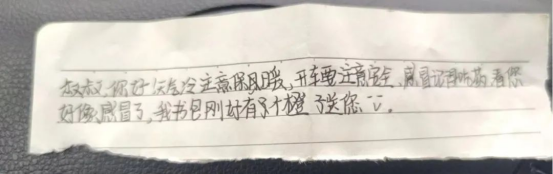 叔叔你好天气冷注意保暖,开车要注意安全,感冒记得吃药,看您
好像感冒了,我书包刚好有个橙子送您